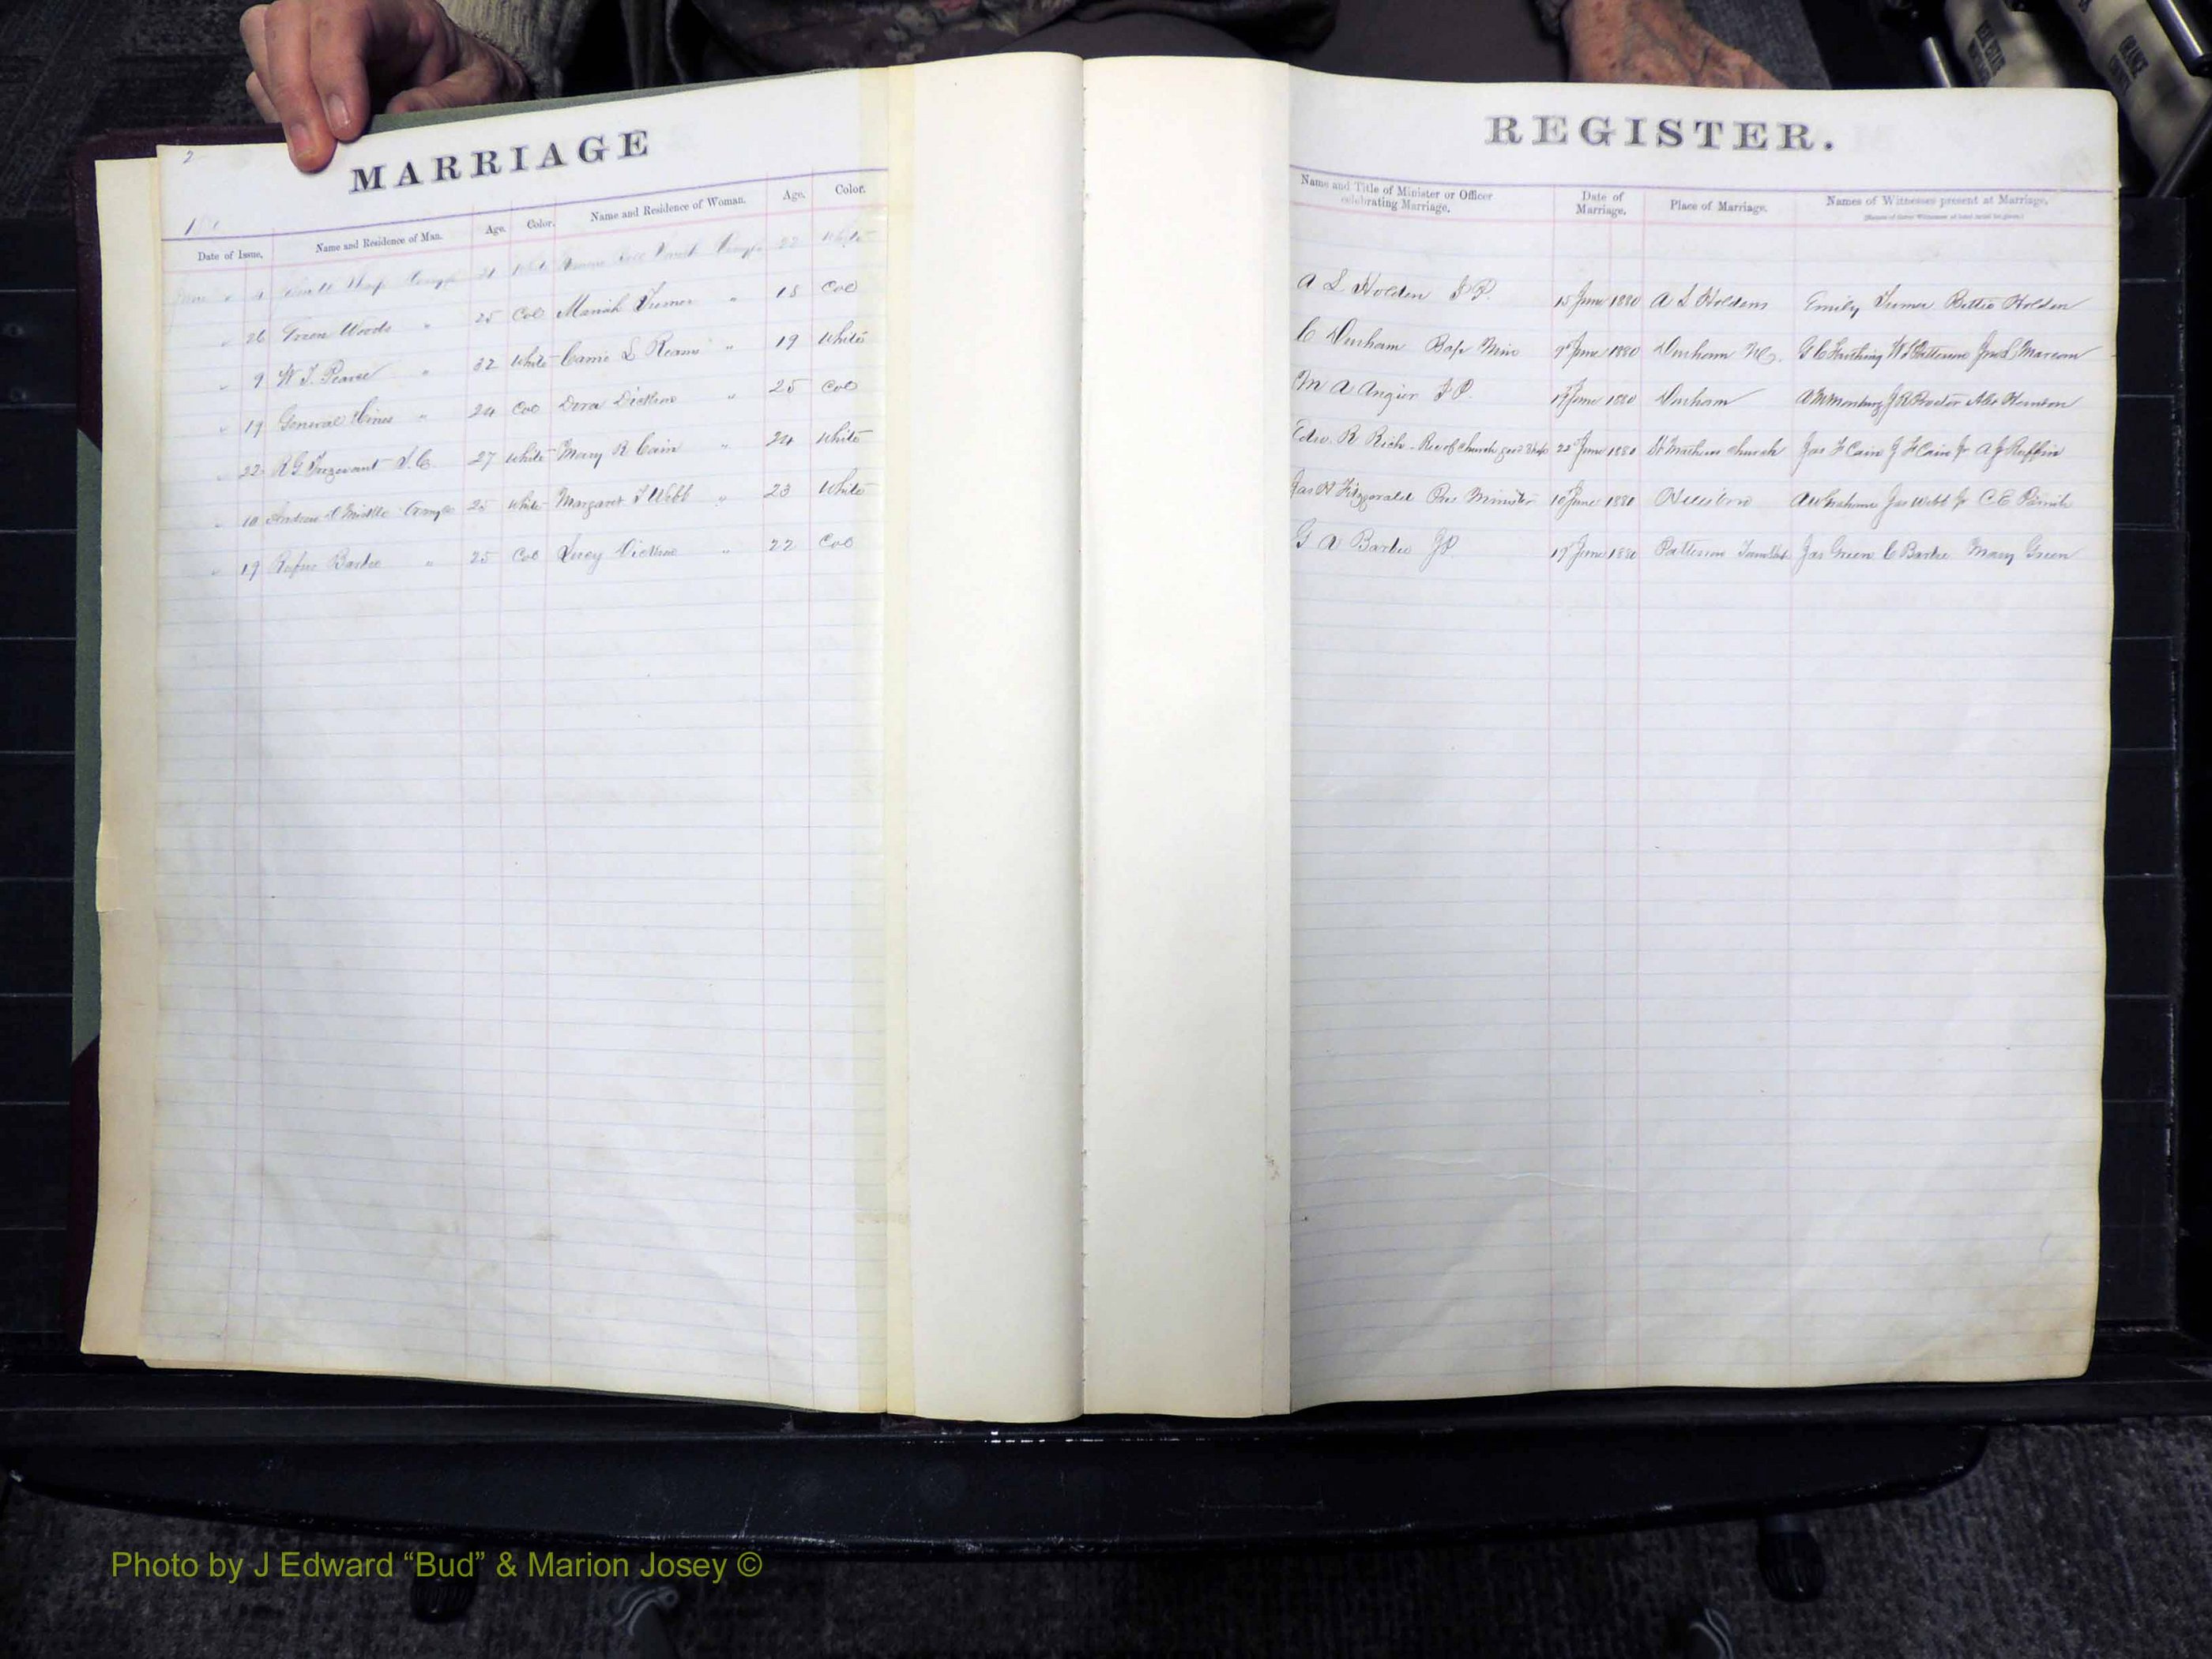 2
MARRIAGE
Date of Issue.
Name and Residence of Man.
Age.
Color.
Name and Residence of Woman.
Age.
Color.
21 White 22 White
" 26 Green Woods " 25 Col Mariah Turner " 18 Col
" 9 W. J. Pearce " 32 White Carrie L Reams " 19 White
" 19 General Hines " 24 Col Dora Dickson " 25 Col
" 22 R G 27 White Mary R Cain " 24 White
" 10 Andrew 25 White Margaret T Webb " 23 White
" 19 Rufus Barbee " 25 Col Lucy Dickson " 22 Col
REGISTER.
Name and Title of Minister or Officer
celebrating Marriage.
Date of
Marriage.
Place of Marriage.
Names of Witnesses present at Marriage.
A L Holden J P. 15 June 1880 A L Holdens Emily Turner Bettie Holden
C Durham Bap Min 9 June 1880 Durham N C. G C Farthing Marcom
M A Angier J P. June 1880 Durham J R Proctor
Edw. R Rich 22 June 1880 St Mathew Church Jas F Cain J F Cain Jr A J Ruffin
Jas H Fitzgerald Pres Minister 10 June 1880 Hillsboro A W Graham Jas Webb Jr C E Parish
G A Barbee J P. 19 June 1880 Patterson Township Jas Green C Barbee Mary Green
Photo by J Edward “Bud” & Marion Josey ©